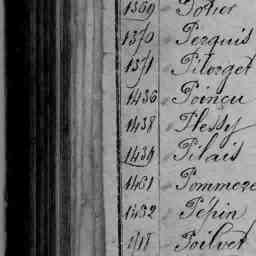 1369 Potier
1370 Perquis
1371 Pitorget
1436 Poinçu
1438 Plessy
1439 Pilais
1461 Pommere
1462 Pépin
Poilvet